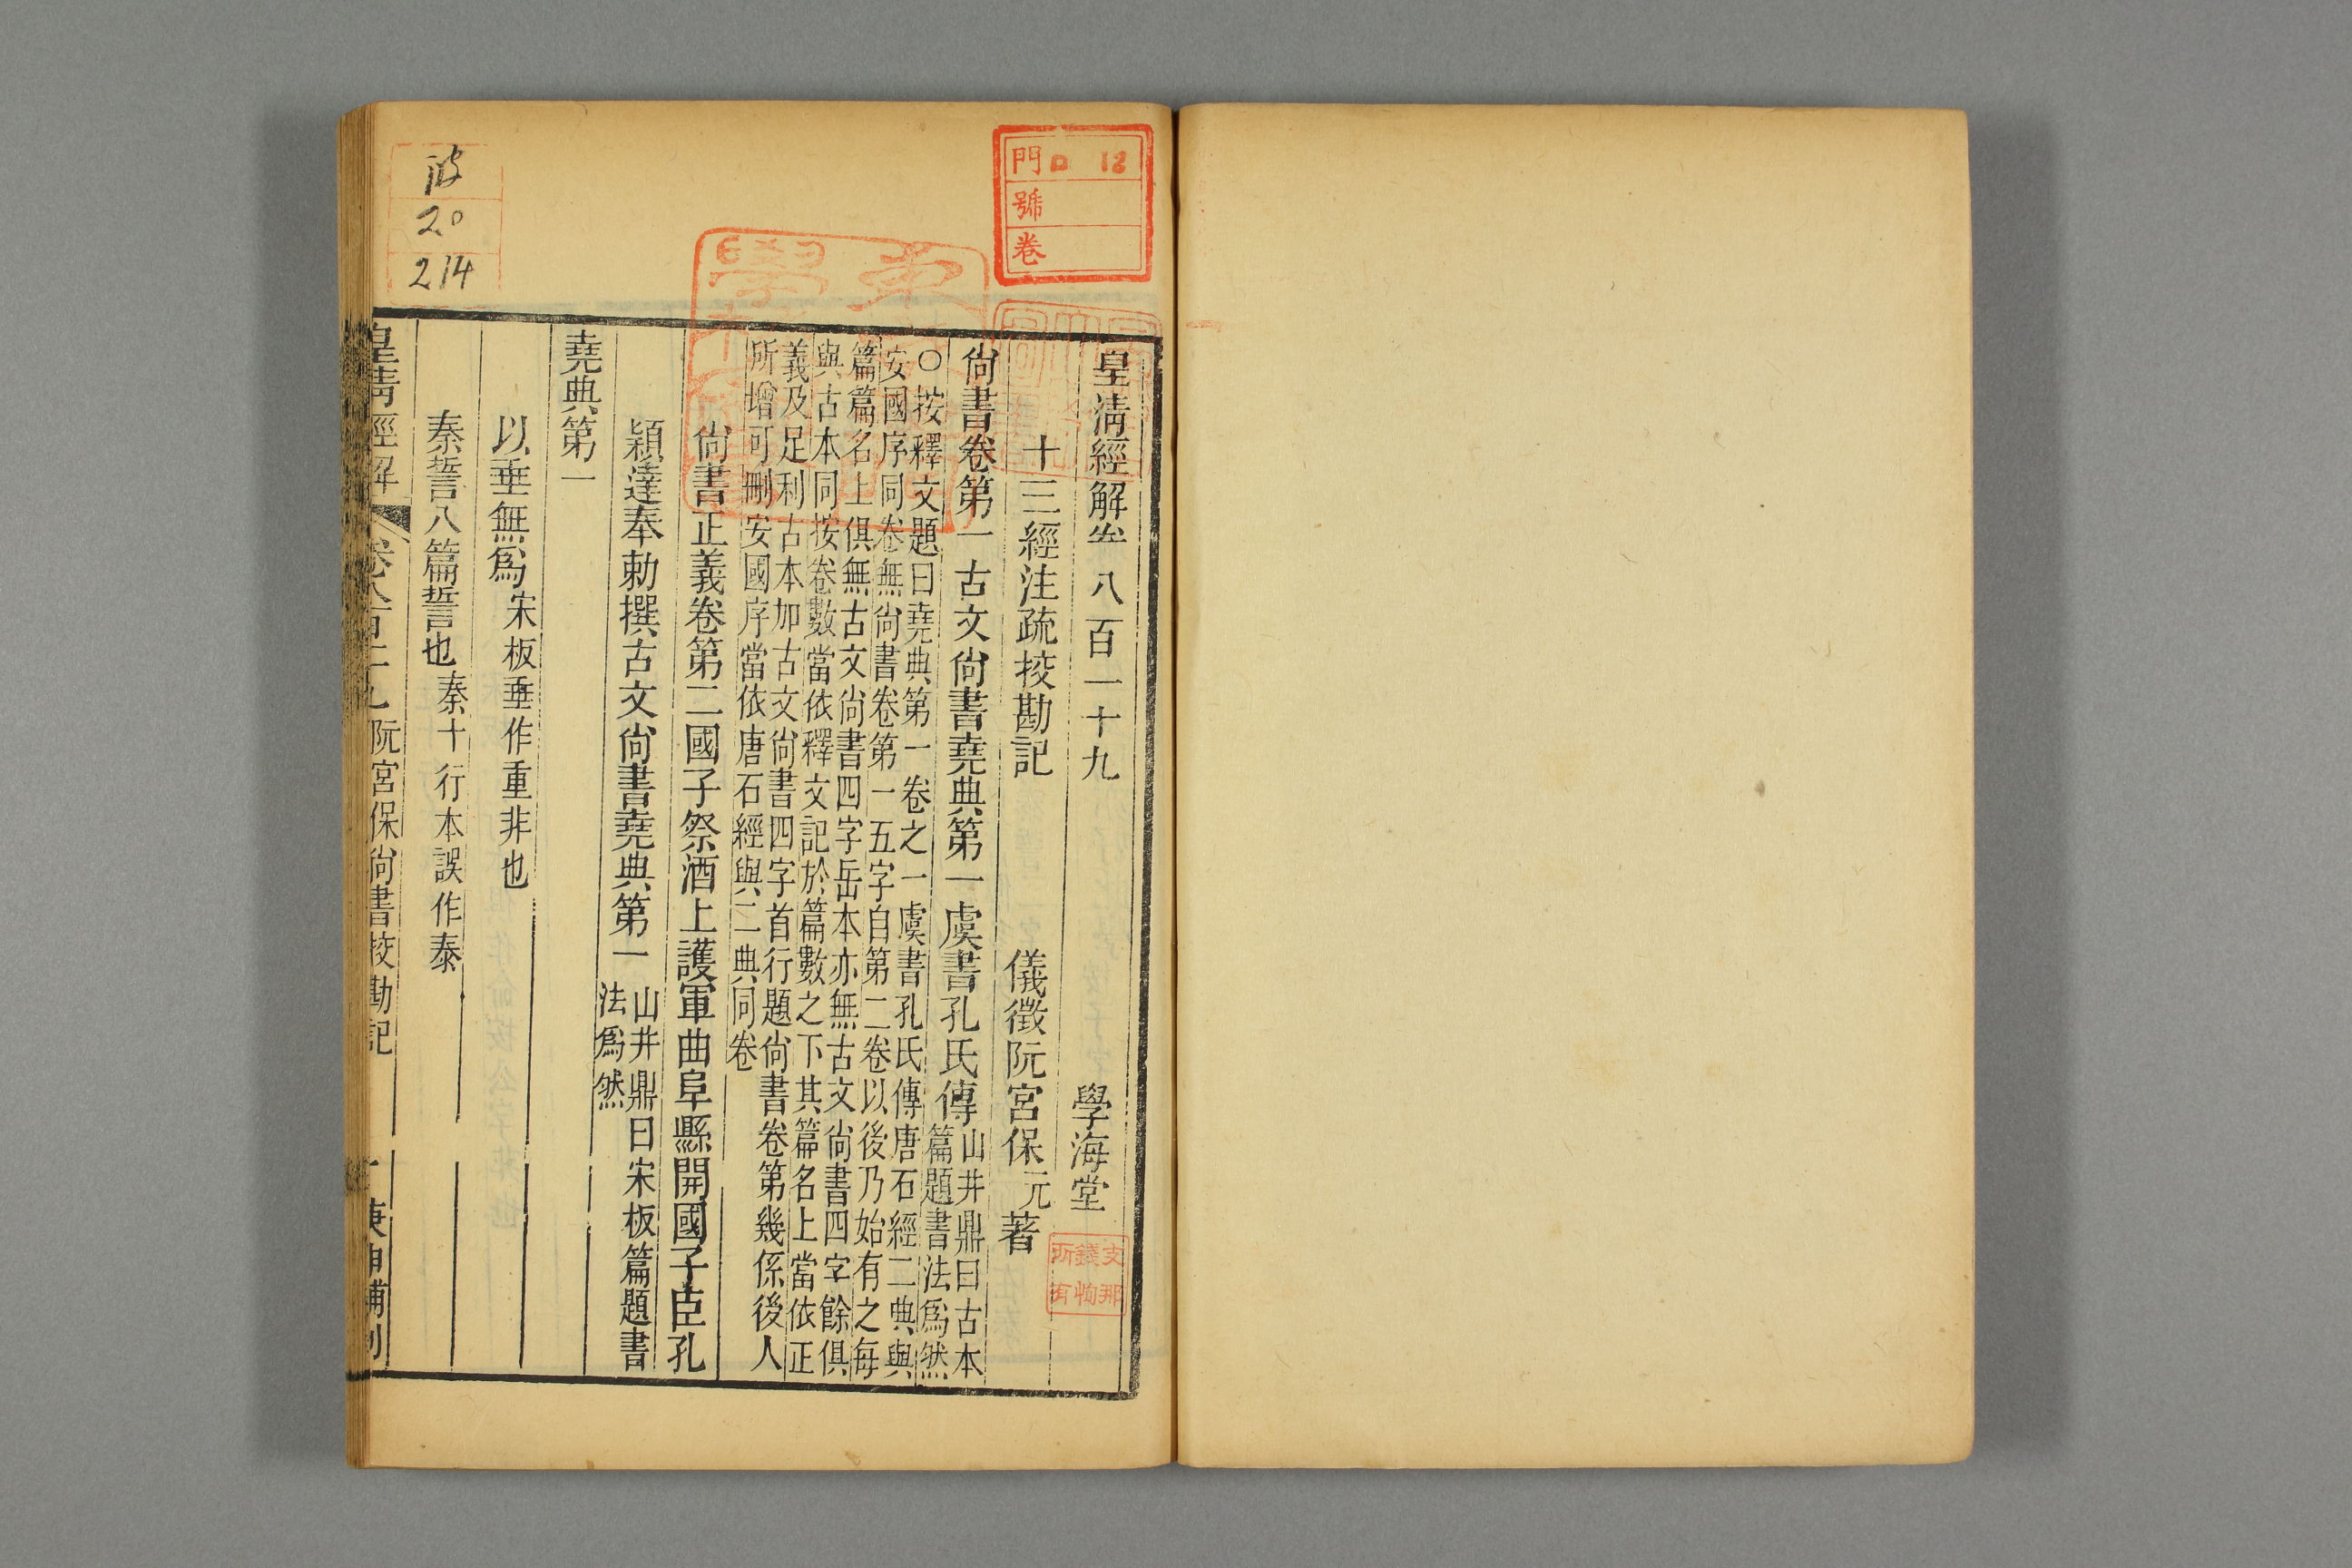 皇清經解卷八百一十九 學海堂
十三經注疏挍勘記 儀徵阮宮保元著
尙書卷第一 古文尙書堯典第一 虞書孔氏傳 山井鼎曰古本
篇題書法爲然
○按釋文題曰堯典第一卷之一虞書孔氏傳唐石經二典與
安國序同卷無尙書卷第一五字自第二卷以後乃始有之每
篇篇名上俱無古文尙書四字岳本亦無古文尙書四字餘俱
與古本同按卷數當依釋文記於篇數之下其篇名上當依正
義及足利古本加古文尙書四字首行題尙書卷第幾係後人
所增可刪安國序當依唐石經與二典同卷
尙書正義卷第二國子祭酒上護軍曲阜縣開國子臣孔
穎達奉勅撰古文尙書堯典第一 山井鼎曰宋板篇題書
法爲然
堯典第一
以垂無爲 宋板垂作重非也
秦誓八篇誓也 秦十行本誤作泰
皇清經解 卷八百一十九 阮宮保尙書挍勘記 一 庚申補刊
門 D 12
號
卷
波
20
214
支那
錢恂
所有